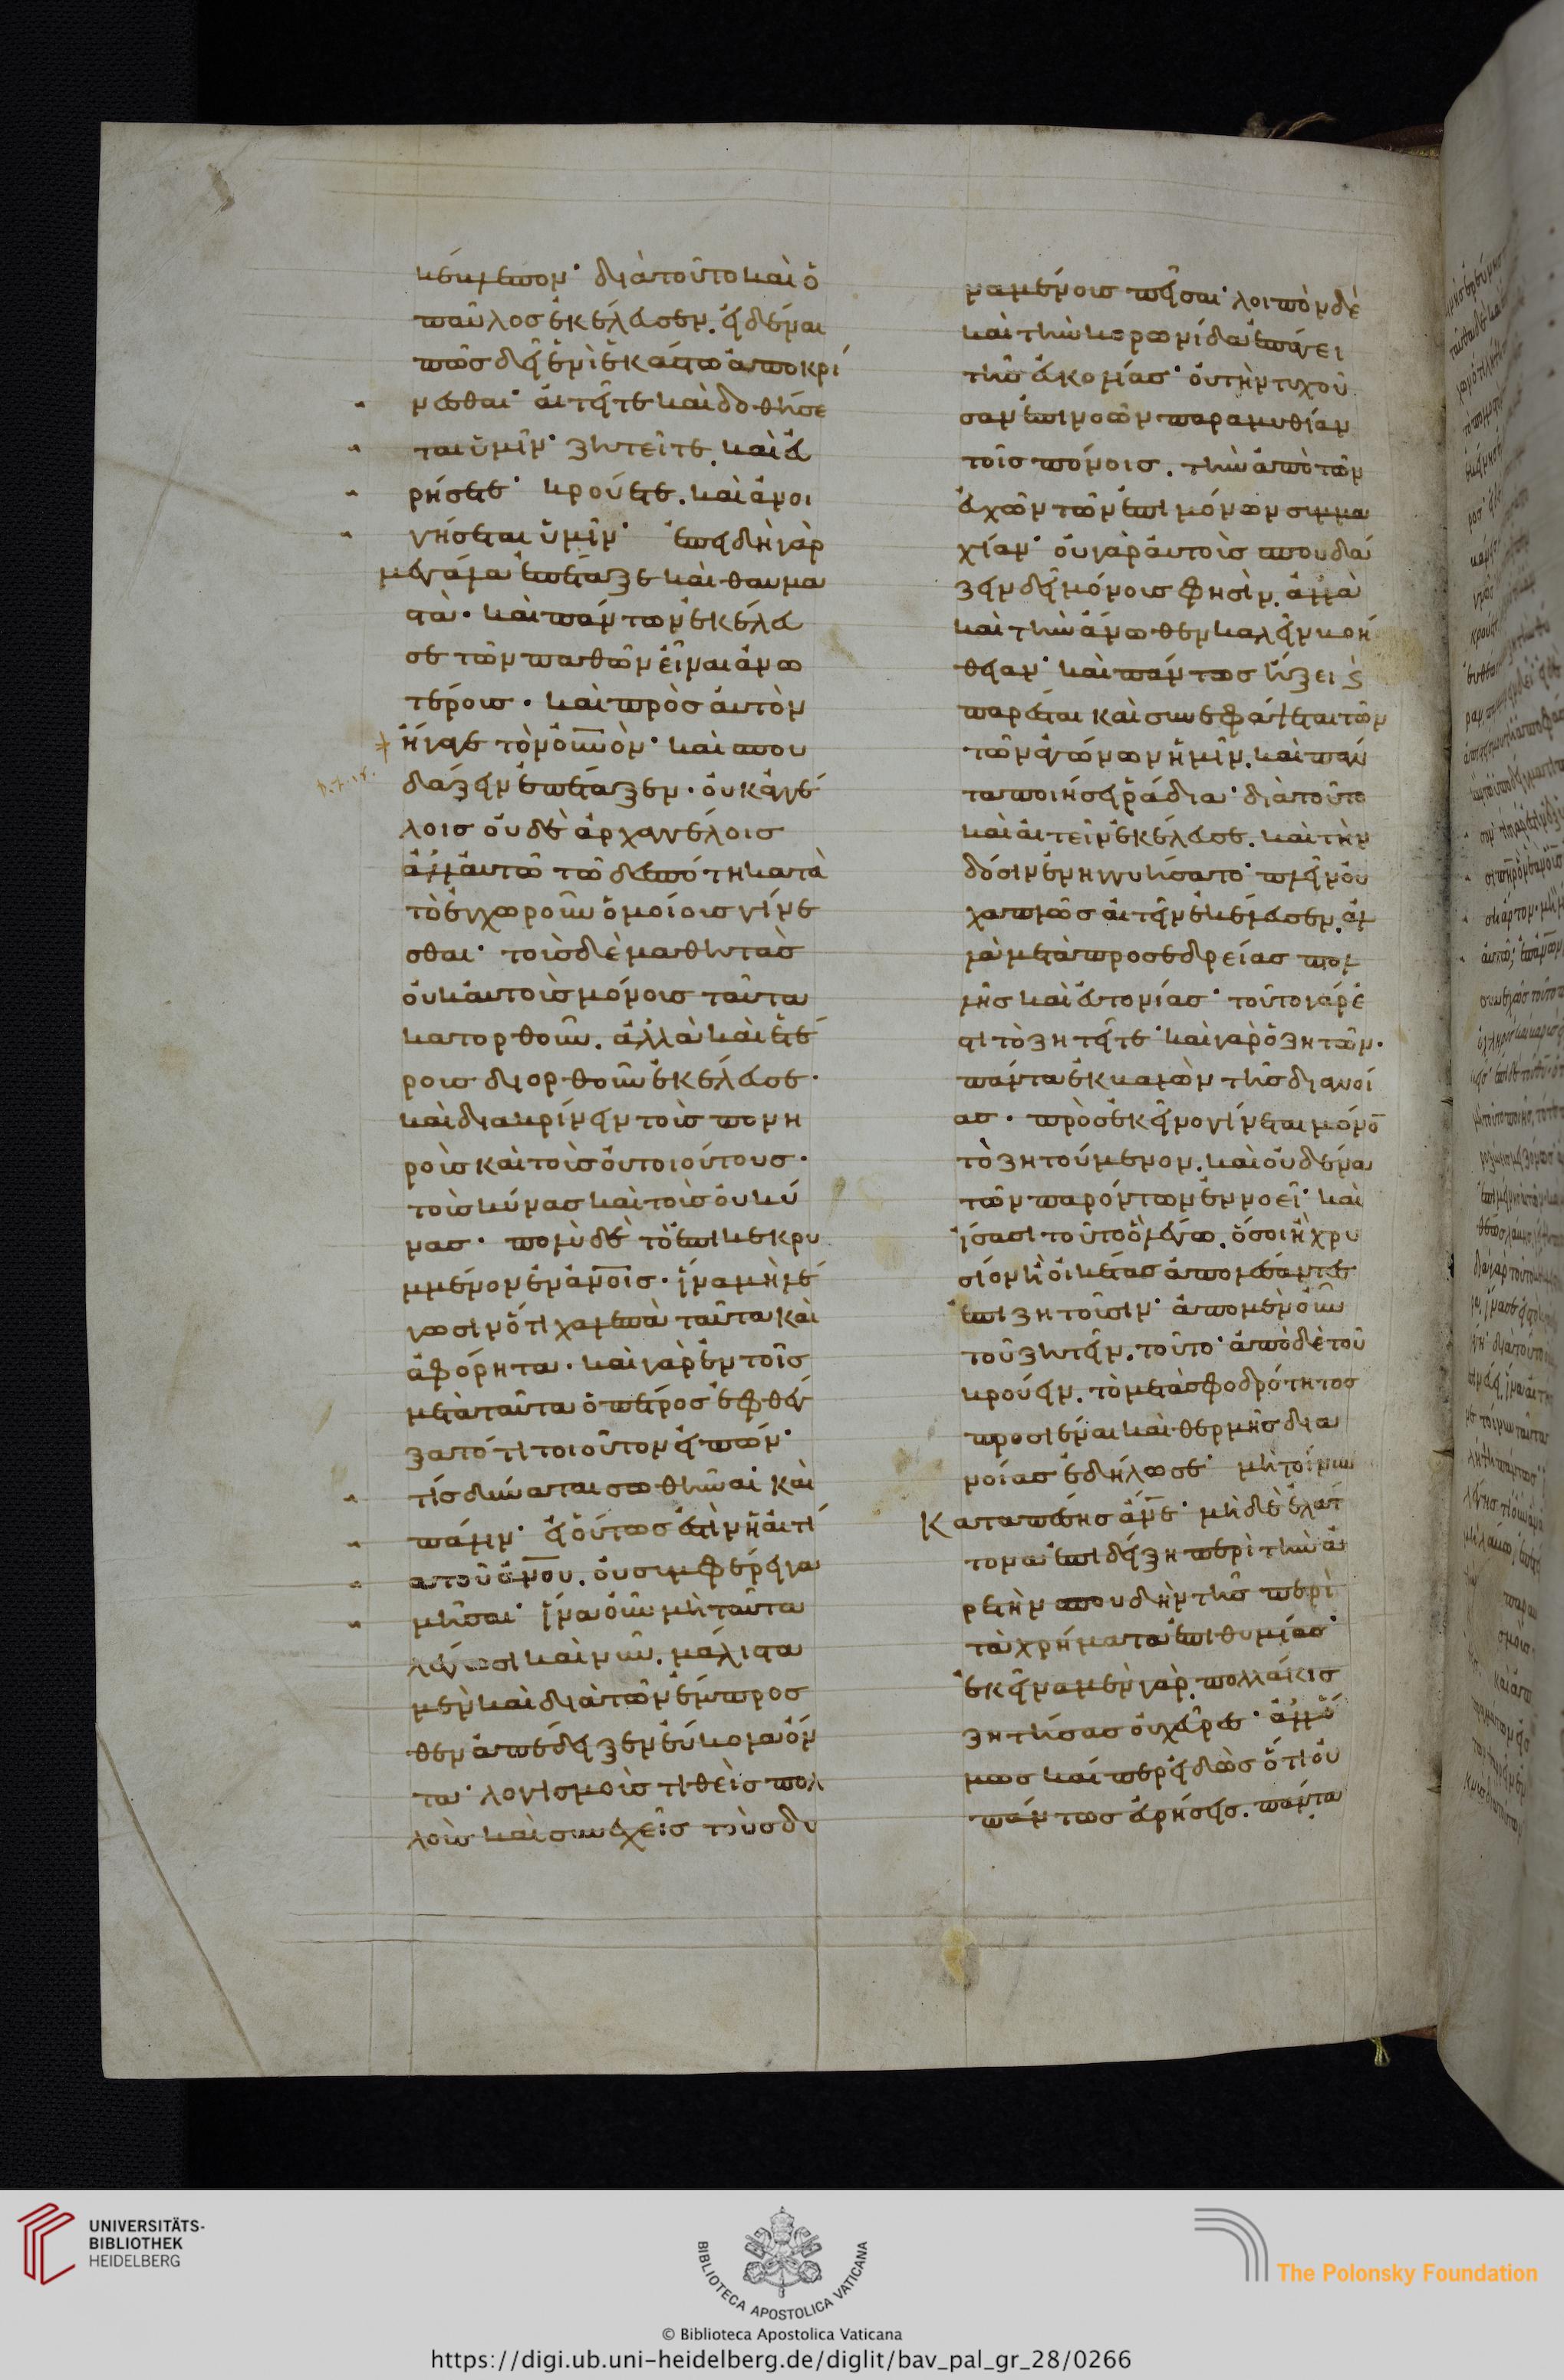 διὰ τοῦτο καὶ ὁ
παῦλος ἐκέλευσεν. εἰδέναι
πῶς δεῖ ἑνὶ ἑκάστω ἀποκρί
νεσθαι· αἰτεῖτε καὶ δοθήσε
ται ὑμῖν· ζητεῖτε, καὶ εὑ
ρήσετε· κρούετε. καὶ ἀνοι
γήσεται ὑμῖν· ἐπειδὴ γὰρ
μεγάλα ἐπέταξε καὶ θαυμα
στὰ· καὶ πάντων ἐκέλευ
σε τῶν παθῶν εἶναι ἀνω
τέρους· καὶ πρὸς αὐτὸν
ἤγαγε τὸν οὐνὸν· καὶ σπου
δάζειν ἐπέταξεν· οὐκ ἀγγέ
λοις οὐδὲ ἀρχαγγέλοις
ἀλλ' αὐτῶ τῶ δεσπότη κατὰ
τὸ ἐγχωροῦν ὁμοίους γίνε
σθαι· τοὺς δὲ μαθητὰς
οὐκ αὐτοὺς μόνους ταῦτα
κατορθοῦν. ἀλλὰ καὶ ἑτέ
ρους διορθοῦν ἐκέλευσε·
καὶ διακρίνειν τοὺς πονη
ροὺς καὶ τοὺς οὐ τοιούτους·
τοὺς κύνας καὶ τοὺς οὐ κύ
νας· πολὺ δὲ τὸ ἐπικεκρυ
μμένον ἐν ἀνοις· ἵνα μὴ λέ
γωσιν ὅτι χαλεπὰ ταῦτα καὶ
ἀφόρητα· καὶ γὰρ ἐν τοῖς
μετὰ ταῦτα ὁ πέτρος ἐφθέγ
ξατό τι τοιοῦτον εἰπών·
τίς δύναται σωθῆναι· καὶ
πάλιν· εἰ οὕτως ἐστὶν ἡ αἰτί
α τοῦ ἀνου. οὐ συμφέρει γα
μῆσαι· ἵνα οὖν μὴ ταῦτα
λέγωσι καὶ νῦν. μάλιστα
μὲν καὶ διὰ τῶν ἔμπροσ
θεν ἀπέδειξεν εὔκολα ὄν
τα· λογισμοὺς τιθεὶς πολ
λοὺς καὶ συνεχεῖς τοὺς δυ
ναμένους πεῖσαι· λοιπὸν δὲ
καὶ τὴν κορωνίδα ἐπάγει
τῆς εὐκολίας· οὐ τὴν τυχοῦ
σαν ἐπινοῶν παραμυθίαν
τοῖς πόνοις. τὴν ἀπὸ τῶν
εὐχῶν τῶν ἐπιμόνων συμμα
χίαν· οὐ γὰρ αὐτοὺς σπουδά
ζειν δεῖ μόνους φησὶν. ἀλλὰ
καὶ τὴν ἄνωθεν καλεῖν βοή
θειαν· καὶ πάντως ἥξει ϛ
παρέσται καὶ συνεφάψεται τῶν
τῶν ἀγώνων ἡμῖν. καὶ πάν
τα ποιήσει ῥάδια· διὰ τοῦτο
καὶ αἰτεῖν ἐκέλευσε. καὶ τὴν
δόσιν ἐνηγγυήσατο· πλὴν οὐ
χ ἁπλῶς αἰτεῖν ἐκέλευσεν. ἀλ
λὰ μετὰ προσεδρείας πολ
λῆς καὶ εὐτονίας· τοῦτο γάρ ἐ
στι τὸ ζητεῖτε· καὶ γὰρ ὁ ζητῶν.
πάντα ἐκβαλὼν τῆς διανοί
ας. πρὸς ἐκεῖνο γίνεται μόνο̅
τὸ ζητούμενον. καὶ οὐδένα
τῶν παρόντων ἐννοεῖ· καὶ
ἴσασι τοῦτο ὃ λέγω. ὅσοι ἢ χρυ
σίον ἢ οἰκέτας ἀπολέσαντες
ἐπιζητοῦσιν· ἀπο μὲν οὖν
τοῦ ζητεῖν. τοῦτο· ἀπὸ δὲ τοῦ
κρούειν. τὸ μετὰ σφοδρότητος
προσιέναι καὶ θερμῆς δια
νοίας ἐδήλωσε· μὴ τοίνυν
Καταπέσης ἄνε· μὴ δὲ ἐλάτ
τονα ἐπιδείξη περὶ τὴν ἀ
ρετὴν σπουδὴν τῆς περὶ
τὰ χρήματα ἐπιθυμίας·
ἐκεῖνα μὲν γὰρ πολλάκις
ζητήσας οὐχ εὗρες· ἀλλ' ὅ
μως καίπερ εἰδὼς ὅτι οὐ
πάντως εὑρήσεις. πάντα
UNIVERSITÄTS-
BIBLIOTHEK
HEIDELBERG
BIBLIOTECA APOSTOLICA VATICANA
© Biblioteca Apostolica Vaticana
The Polonsky Foundation
https://digi.ub.uni-heidelberg.de/diglit/bav_pal_gr_28/0266